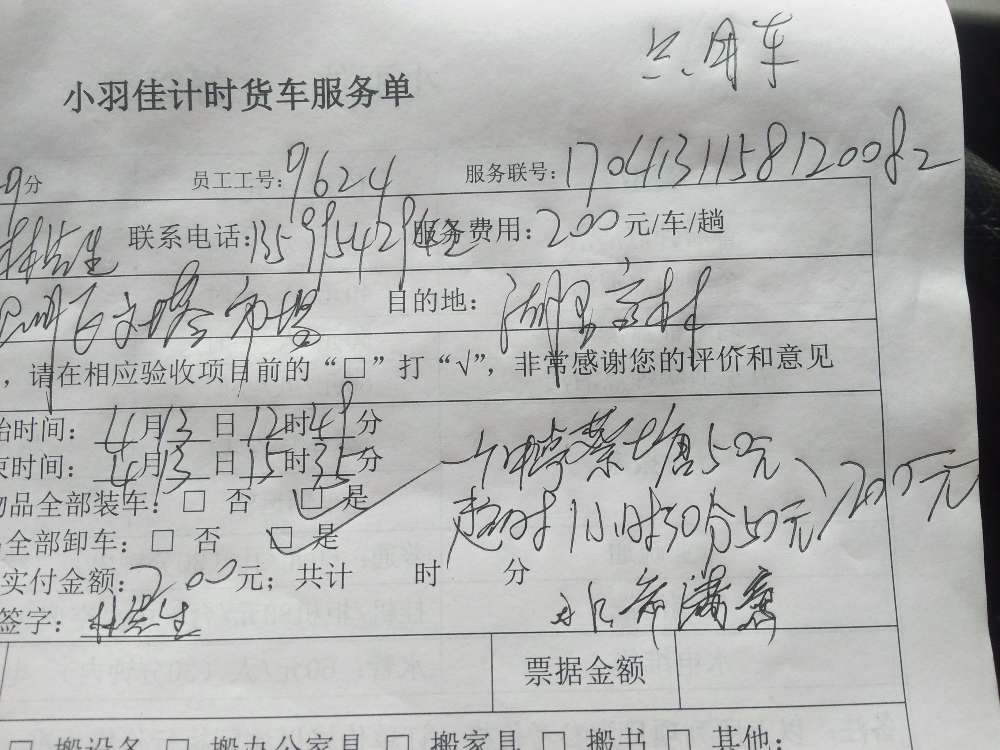 用车
小羽佳计时货车服务单
9分 员工工号:9624 服务联号:1704131158120082
林 生 联系电话:13595429 服务费用:200元/车/趟
市场 目的地:湖里 村
,请在相应验收项目前的“□”打“√”,非常感谢您的评价和意见
始时间:4月13日12时49分
束时间:4月13日15时35分 50元
物品全部装车:□ 否 □ 是 超时1小时30分50元 200元
全部卸车:□ 否 □ 是
实付金额:200元;共计 时 分
签字:林 生 满意
票据金额
□ 搬设备 □ 搬办公家具 □ 搬家具 □ 搬书 □ 其他: